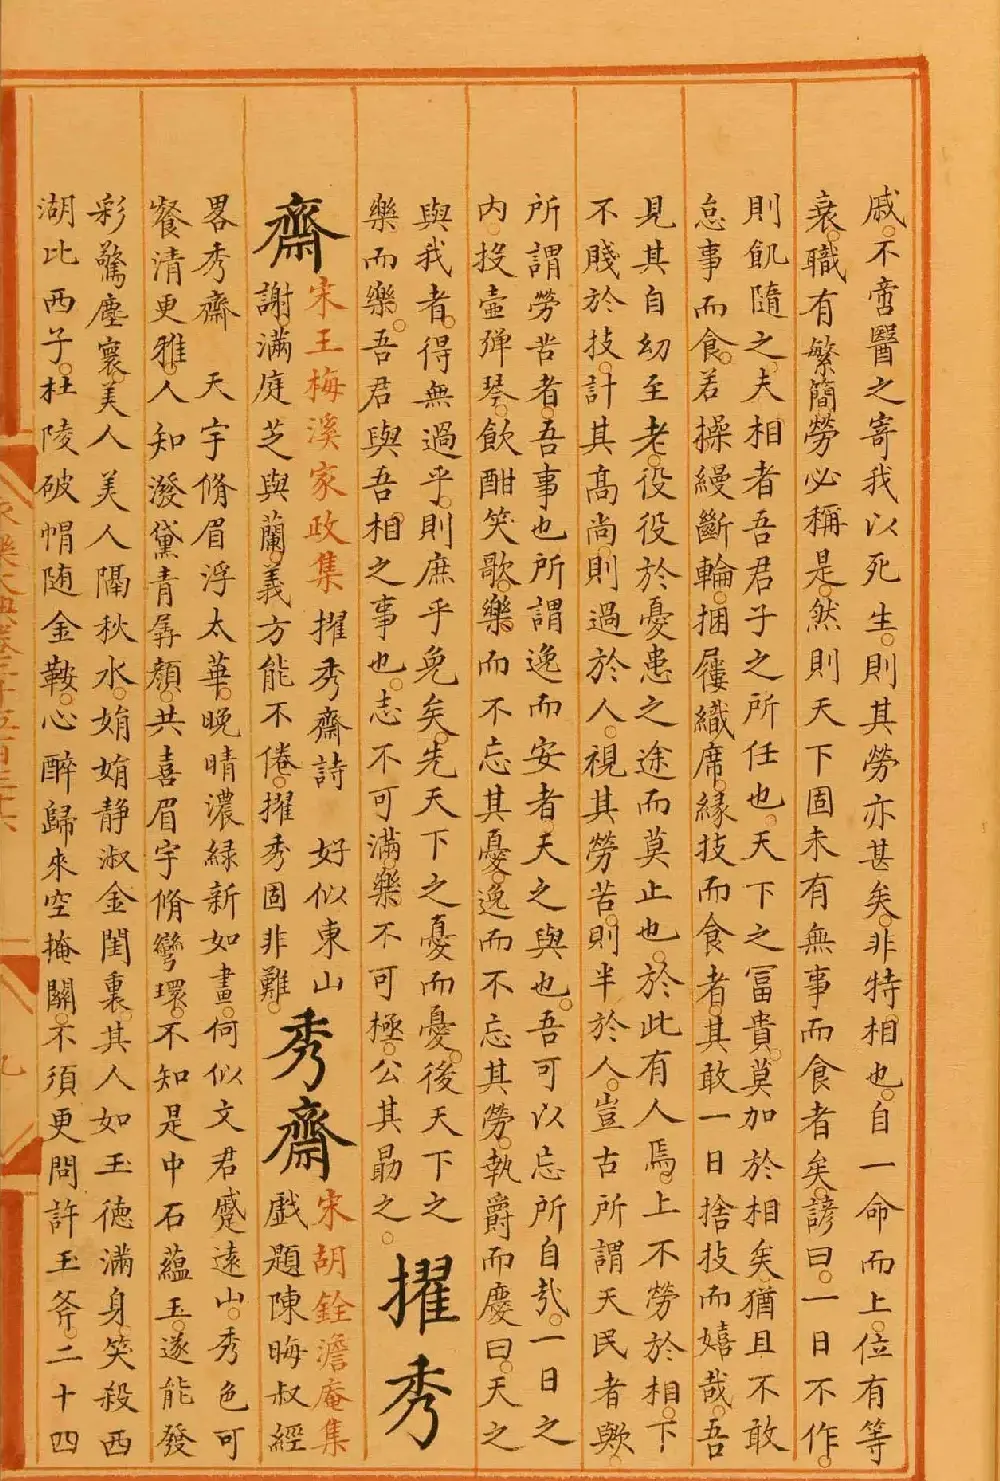 戚。不啻醫之寄我以死生。則其勞亦甚矣。非特相也。自一命而上。位有等
衰。職有繁簡。勞必稱是。然則天下固未有無事而食者矣。諺曰。一日不作。
則飢隨之。夫相者吾君子之所任也。天下之冨貴。莫加於相矣。猶且不敢
怠事而食。若操縵斷輪。捆屨織席。緣技而食者。其敢一日捨技而嬉哉。吾
見其自幼至老。役役於憂患之途而莫止也。於此有人焉。上不勞於相。下
不賤於技。計其高尚。則過於人。視其勞苦。則半於人。豈古所謂天民者歟。
所謂勞苦者。吾事也。所謂逸而安者。天之與也。吾可以忘所自㢤。一日之
內。投壺彈琴。飲酣笑歌。樂而不忘其憂。逸而不忘其勞。執爵而慶曰。天之
與我者。得無過乎。則庶乎免矣。先天下之憂而憂。後天下之
樂而樂。吾君與吾相之事也。志不可滿。樂不可極。公其勗之。
擢秀
齋
宋王梅溪家政集 擢秀齋詩 好似東山
謝滿庭芝與蘭。義方能不倦。擢秀固非難。
秀齋
宋胡銓澹庵集
戲題陳晦叔經
畧秀齋 天宇脩眉浮太華。晚晴濃緑新如畫。何似文君蹙遠山。秀色可
餐清更雅。人知潑黛青孱顏。共喜眉宇脩彎環。不知是中石蘊玉。遂能發
彩驚塵寰。美人 美人隔秋水。娟娟静淑金閨裏。其人如玉德滿身。笑殺西
湖比西子。杜陵破帽随金鞍。心醉歸來空掩關。不須更問許玉斧。二十四
永樂大典卷二千五百三十六
九